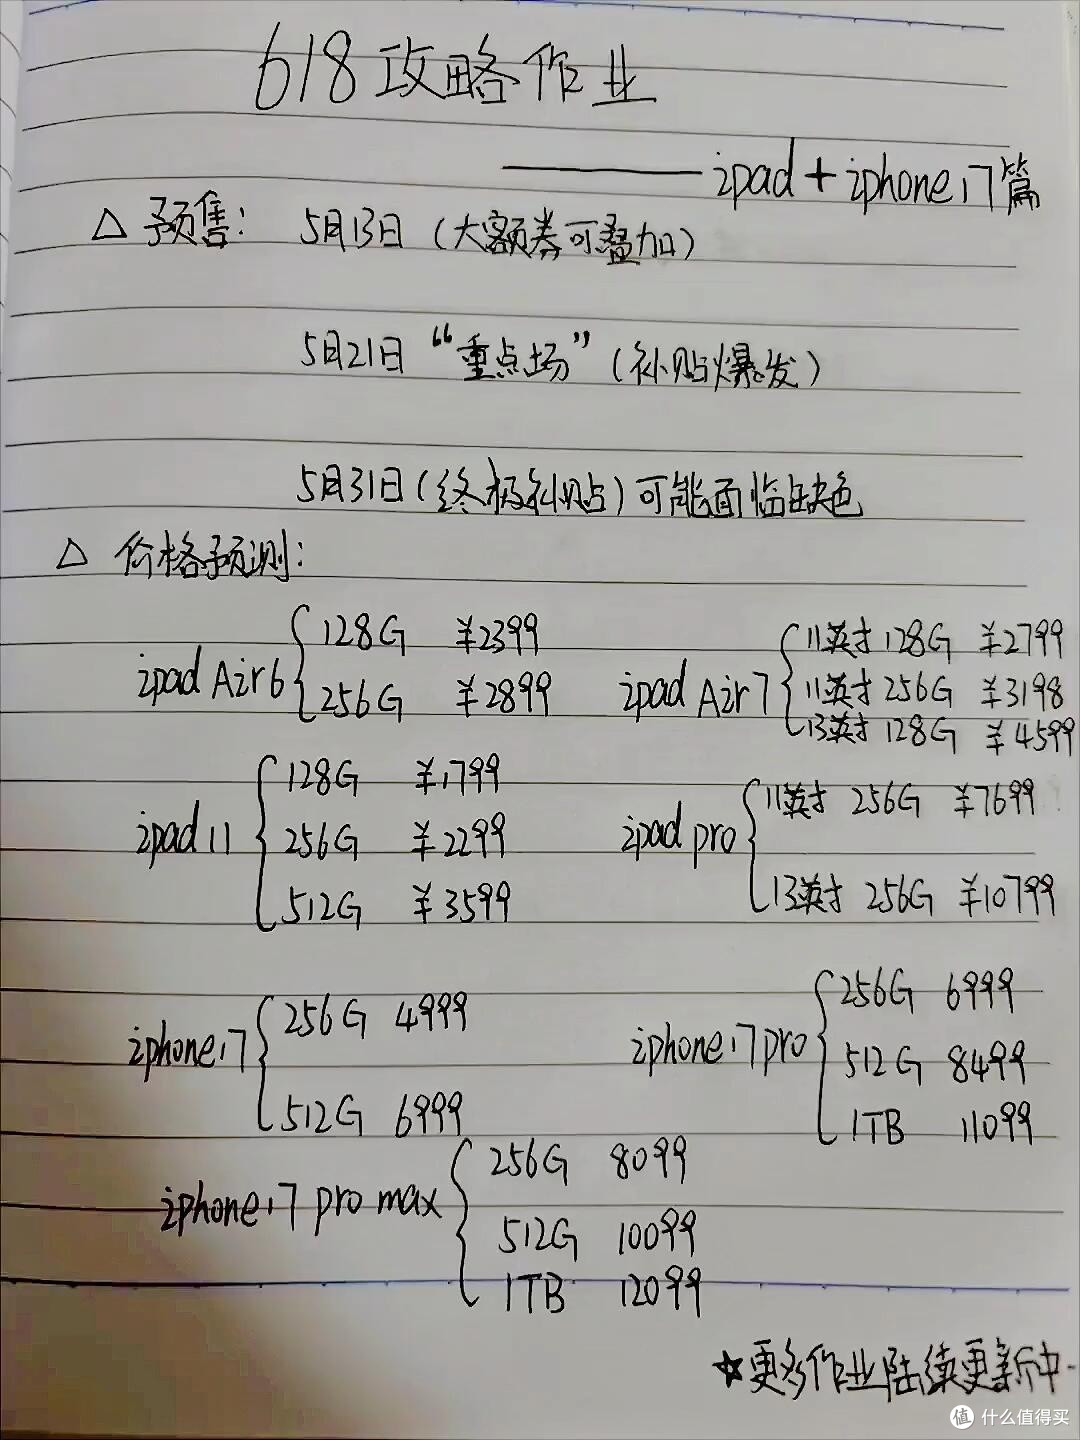 618攻略作业
——ipad+iphone17篇
△ 预售: 5月13日 (大额券可叠加)
5月21日 “重点场” (补贴爆发)
5月31日 (终极补贴) 可能面临缺色
△ 价格预测:
ipad Air6
128G ¥2399
256G ¥2899
ipad Air7
11英寸 128G ¥2799
11英寸 256G ¥3198
13英寸 128G ¥4599
ipad 11
128G ¥1799
256G ¥2299
512G ¥3599
ipad pro
11英寸 256G ¥7699
13英寸 256G ¥10799
iphone17
256G 4999
512G 6999
iphone17 pro
256G 6999
512G 8499
1TB 11099
iphone17 pro max
256G 8099
512G 10099
1TB 12099
★更多作业陆续更新中
值 什么值得买